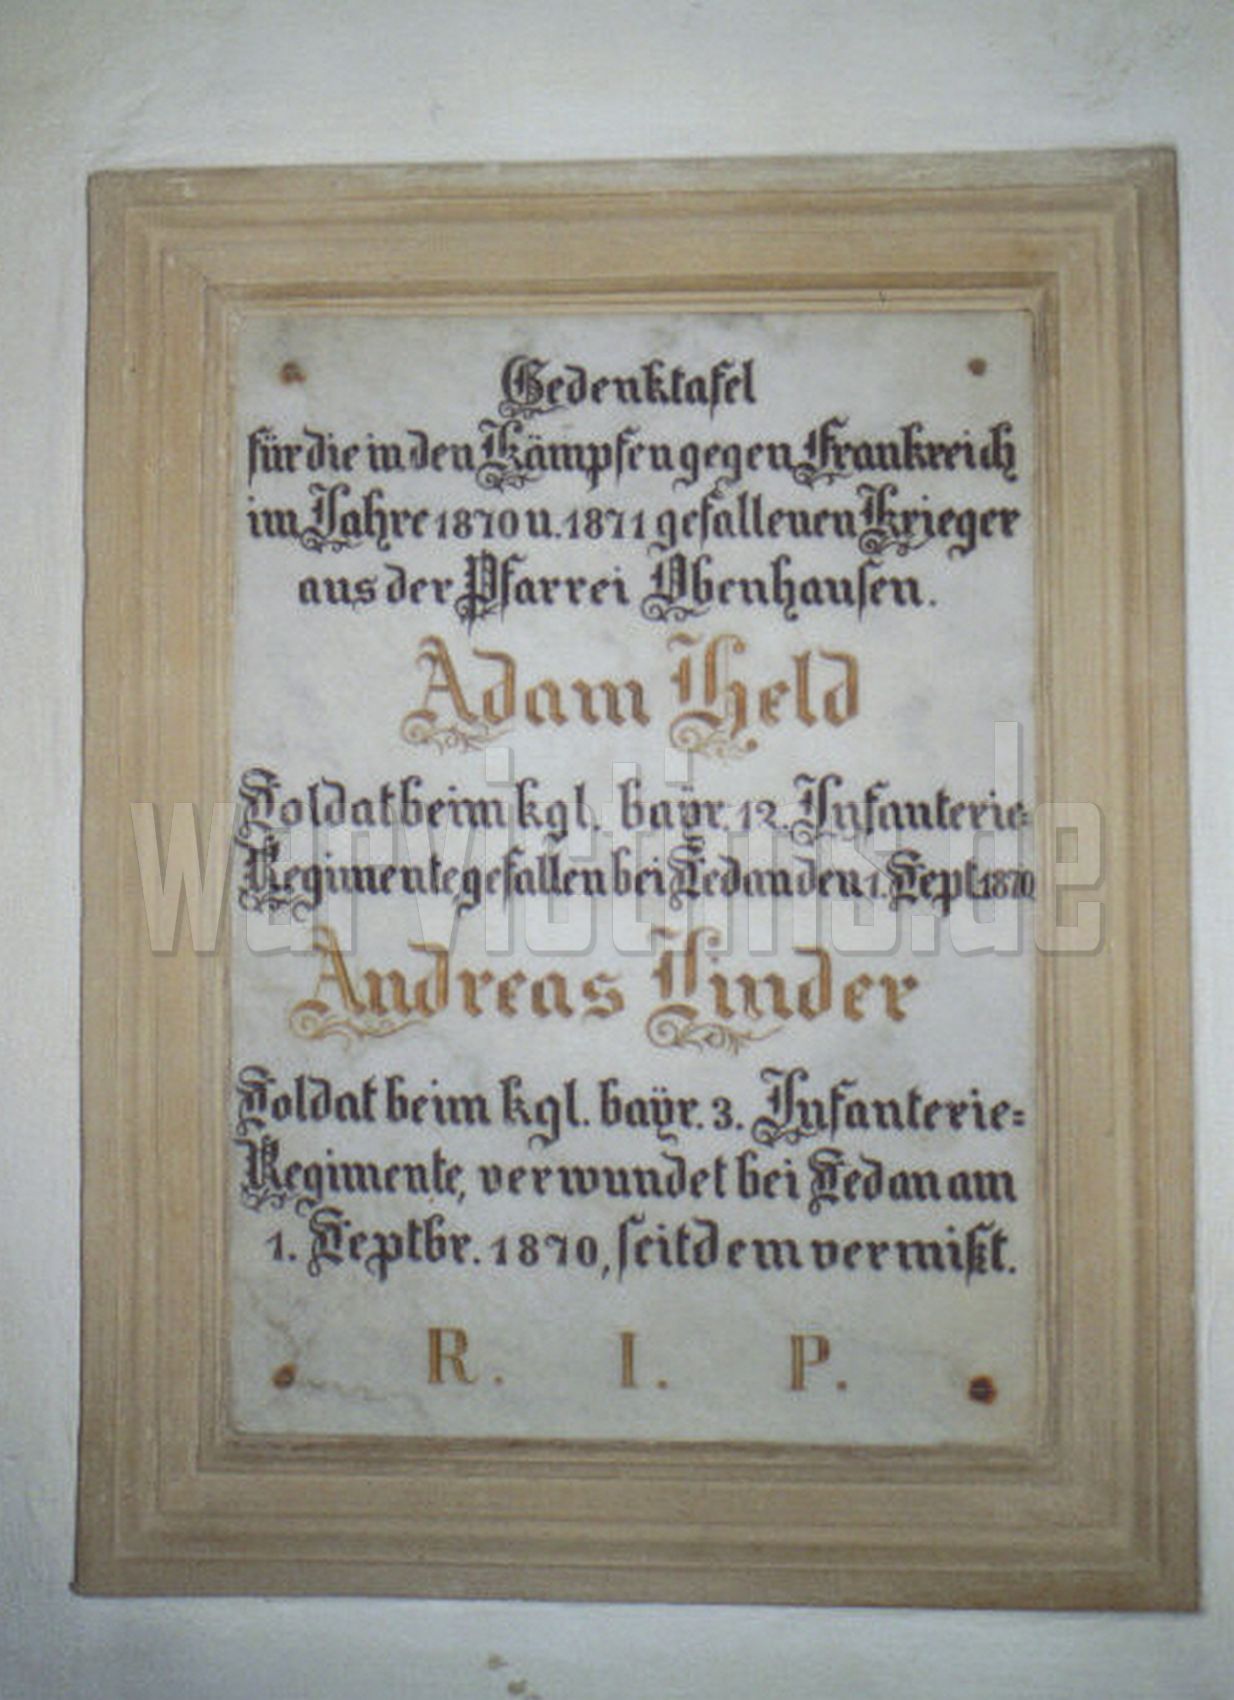 Gedenktafel
für die in den Kämpfen gegen Frankreich
im Jahre 1870 u. 1871 gefallenen Krieger
aus der Pfarrei Obenhausen.
Adam Held
Soldat beim kgl. bayr. 12. Infanterie=
Regimente, gefallen bei Sedan den 1. Sept. 1870,
Andreas Linder
Soldat beim kgl. baÿr. 3. Infanterie=
Regimente, verwundet bei Sedan am
1. Septbr. 1870, seitdem vermißt.
R. I. P.
warvictims.de